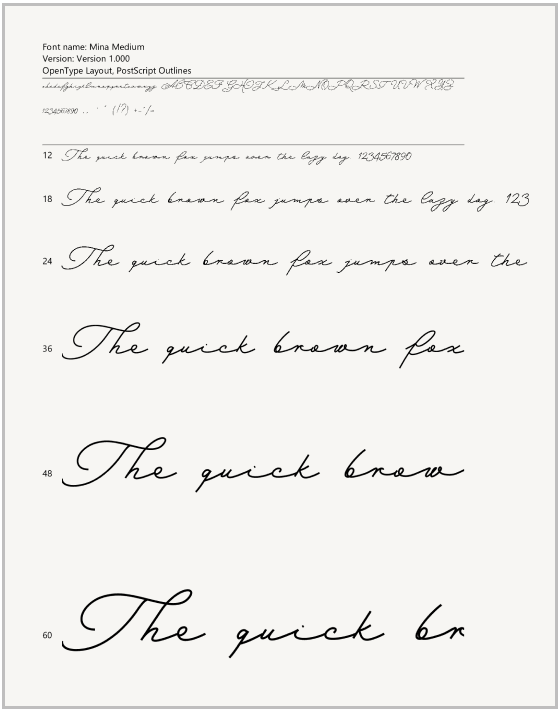 Font name: Mina Medium
Version: Version 1.000
OpenType Layout, PostScript Outlines
abcdefghijklmnopqrstuvwxyz ABCDEFGHIJKLMNOPQRSTUVWXYZ
1234567890 .. ' ' (!?) +-*/=
12 The quick brown fox jumps over the lazy dog 1234567890
18 The quick brown fox jumps over the lazy dog 123
24 The quick brown fox jumps over the
36 The quick brown fox
48 The quick brow
60 The quick br